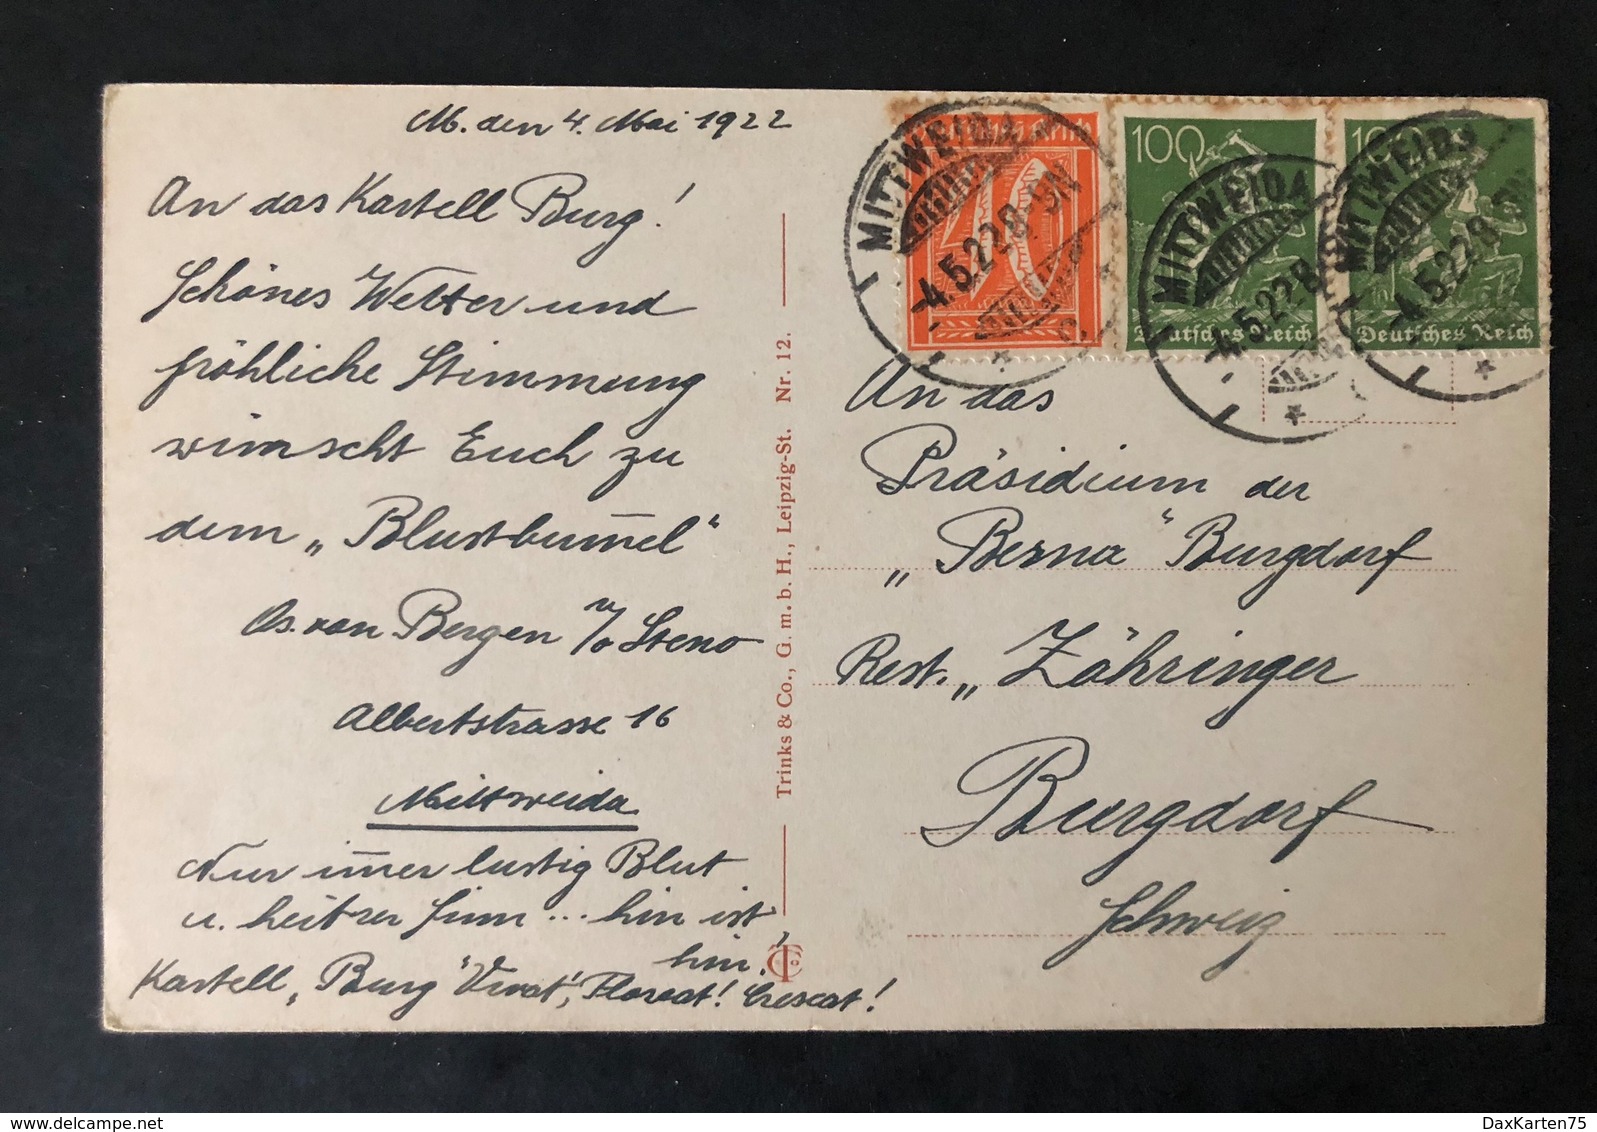 M. den 4. Mai 1922
An das Kartell Burg!
Schönes Wetter und
fröhliche Stimmung
wünscht Euch zu
dem „Blustbum̅el“
Os. von Bergen v/o Steno
Albertstrasse 16
Mittweida
Nur im̅er lustig Blut
u. heitrer Sinn ... hin ist
hin!
Kartell „Burg“ Vivat, Floreat! Crescat!
Trinks & Co., G. m. b. H., Leipzig-St. Nr. 12.
MITTWEIDA
-4.5.22.8-9N
100
Deutsches Reich
MITTWEIDA
-4.5.22.8
100
Deutsches Reich
MITTWEIDA
-4.5.22.8
An das
Präsidium der
„Berna“ Burgdorf
Rest. „Zähringer
Burgdorf
Schweiz
DaxKarten75